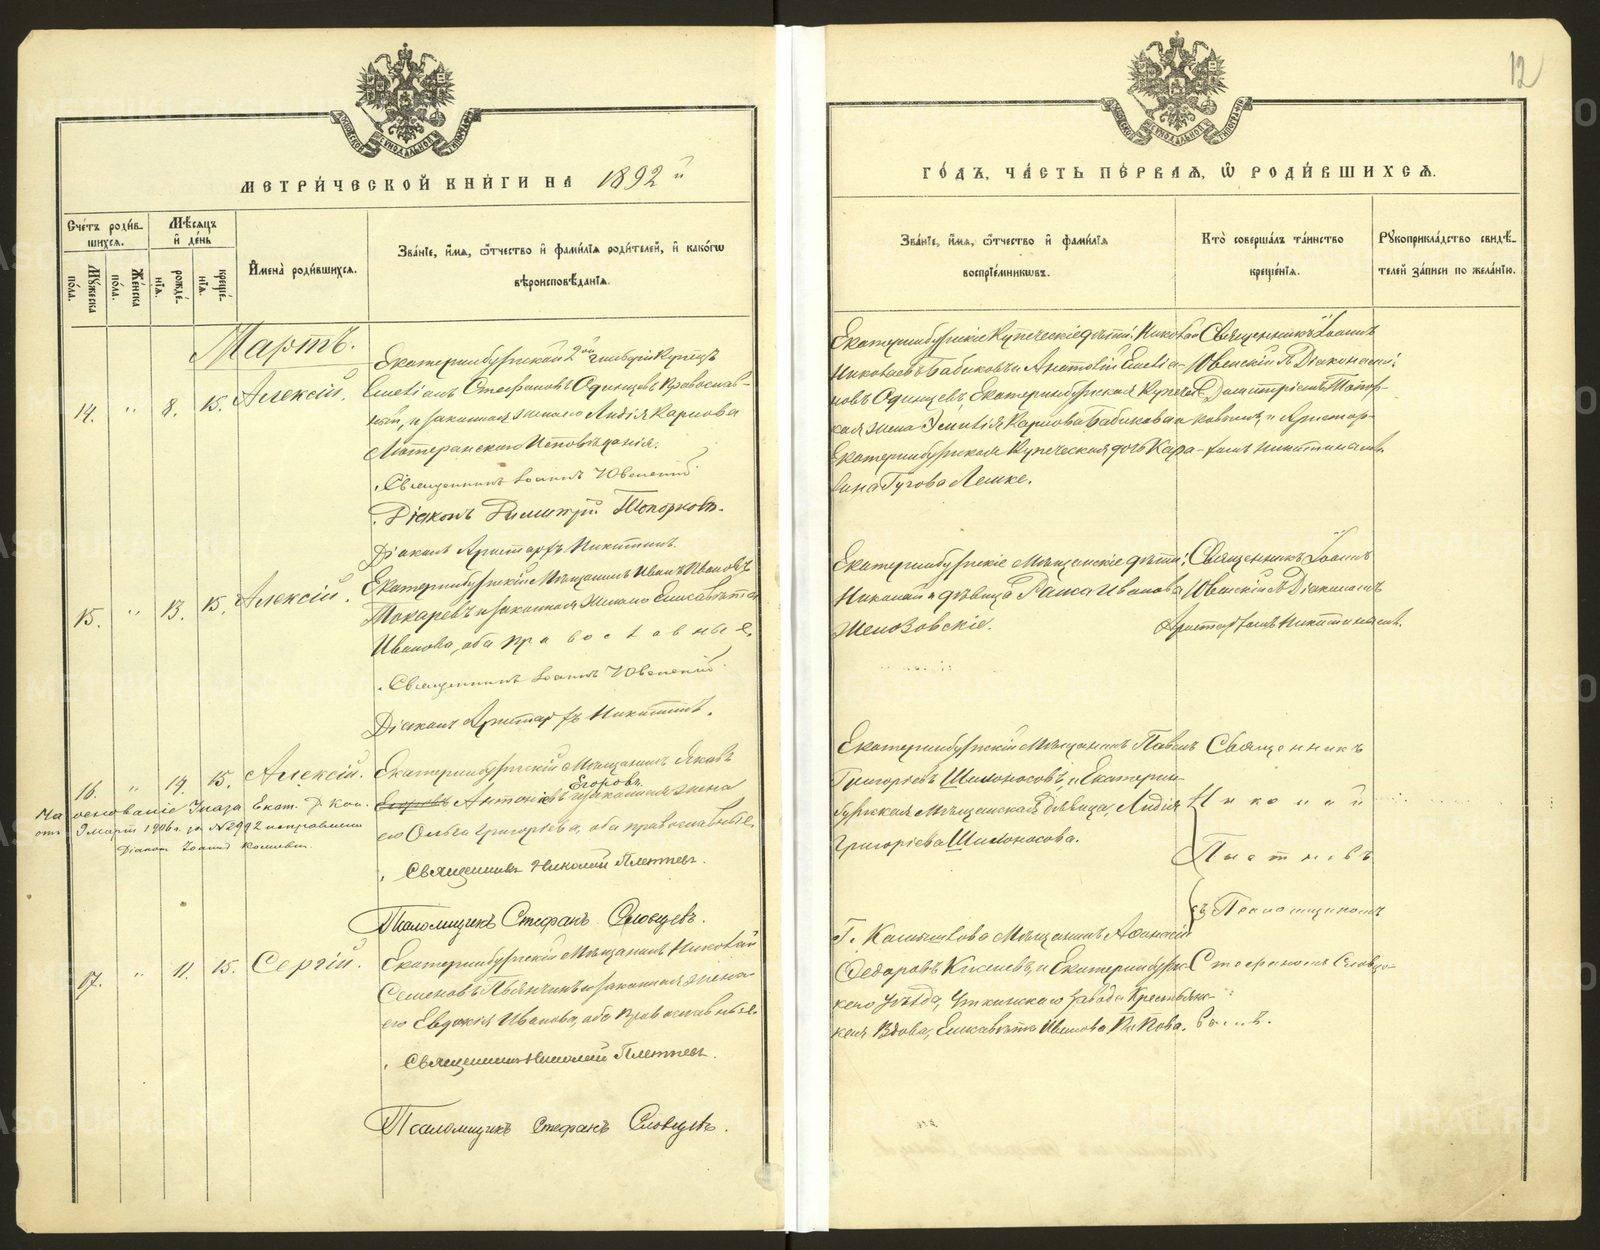 12
МЕТРИ́ЧЕСКОЙ КНИ́ГИ НА 1892 й
ГО́ДЪ, ЧА́СТЬ ПЕ́РВАЯ, Ѡ РОДИ́ВШИХСЯ.
Сче́тъ роди́в-
шихся.
Мѣ́сяцъ
и де́нь
Му́жеска
по́ла.
Же́нска
по́ла.
рожде́-
нія.
креще́-
нія.
Имена̀ роди́вшихся.
Зва́ніе, и́мя, ѻ҆́тчество и фами́лія роди́телей, и како́гѡ
вѣроисповѣ́данія.
Зва́ніе, и́мя, ѻ҆́тчество и фами́лія
воспріе́мниковъ.
Кто̀ соверша́лъ та́инство
креще́нія.
Рукоприкла́дство свидѣ́-
телей за́писи по жела́нію.
Мартъ.
14. " 8. 15. Алексій.
Екатеринбургскій 2ой гильдіи Купецъ
Стефановъ Одинцовъ Православ-
ный, и законная жена его Лидія Карлова
Лютеранскаго Исповѣданія.
Священникъ Іоаннъ Ювенскій
Діаконъ Димитрій Топорковъ.
Діаконъ Аристархъ Никитинъ.
Екатеринбургскіе Купеческіе дѣти: Николай
Николаевъ Бабиковъ и Анатолій
новъ Одинцовъ, Екатеринбургская Купечес-
кая жена Эмилія Карлова Бабикова и
Екатеринбургская Купеческая дочь
Лемке.
Священникъ Іоаннъ
Ювенскій съ Діаконами:
Димитріемъ Топор-
ковымъ и Аристар-
хомъ Никитинымъ.
15. " 13. 15. Алексій.
Екатеринбургскій Мѣщанинъ Иванъ Ивановъ
Токаревъ и законная жена его Елисавета
Иванова, оба православные.
Священникъ Іоаннъ Ювенскій
Діаконъ Аристархъ Никитинъ.
Екатеринбургскіе Мѣщанскіе дѣти:
Николай и дѣвица Раиса Ивановы
Священникъ Іоаннъ
Ювенскій съ Діакономъ
Аристархомъ Никитинымъ.
16. " 14. 15. Алексій.
На основаніи Указа Екат. Д. Кон.
отъ 9 марта 1906 г. за № 2992 исправлено
Діаконъ Іоаннъ
Екатеринбургскій Мѣщанинъ Яковъ
Егоровъ Антоновъ Егоровъ и законная жена
его Ольга Григорьева, оба православные.
Священникъ Николай Плетневъ.
Псаломщикъ Стефанъ Словцевъ.
Екатеринбургскій Мѣщанинъ Павелъ
Григорьевъ Шилоносовъ, и Екатерин-
бургская Мѣщанская дѣвица Лидія
Григорьева Шилоносова.
Священникъ
Николай
Плетневъ
съ Псаломщикомъ
Стефаномъ Словцо-
вымъ.
17. " 11. 15. Сергій.
Екатеринбургскій Мѣщанинъ Николай
Семеновъ Пьянчинъ и законная жена
его Евдокія Иванова, оба православные.
Священникъ Николай Плетневъ.
Псаломщикъ Стефанъ Словцевъ.
Г. Камышлова Мѣщанинъ Афанасій
Федоровъ и Екатеринбургс-
каго Уѣзда, Уткинскаго завода Крестьянс-
кая Вдова, Елисавета Иванова Попова.